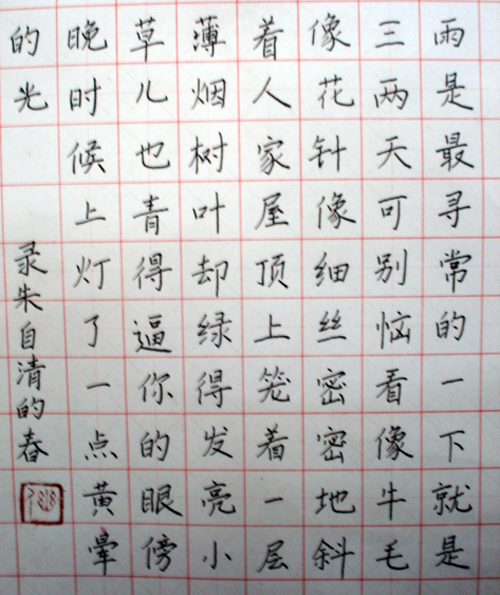 雨是最寻常的一下就是
三两天可别恼看像牛毛
像花针像细丝密密地斜
着人家屋顶上笼着一层
薄烟树叶却绿得发亮小
草儿也青得逼你的眼傍
晚时候上灯了一点黄晕
的光
录朱自清的春